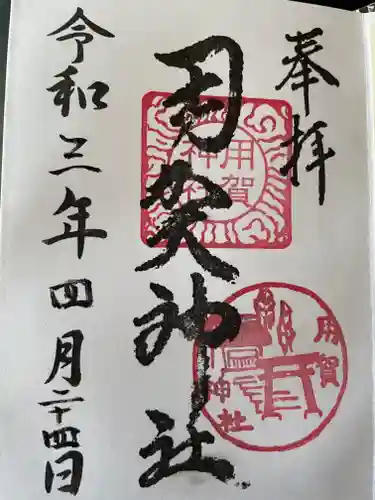 奉拝
用賀神社
用賀神社
用賀
神社
令和三年四月二十四日